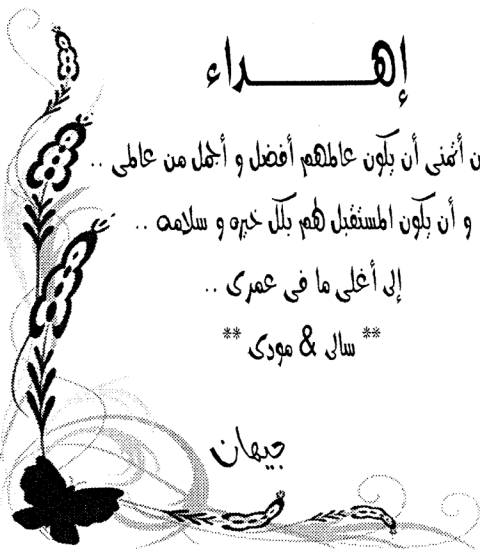 إهـــــــداء
أتمنى أن يكون عالمهم أفضل و أجمل من عالمى ..
و أن يكون المستقبل لهم بكل خيره و سلامه ..
إلى أغلى ما فى عمرى ..
** سالى & مودى **
جيهان